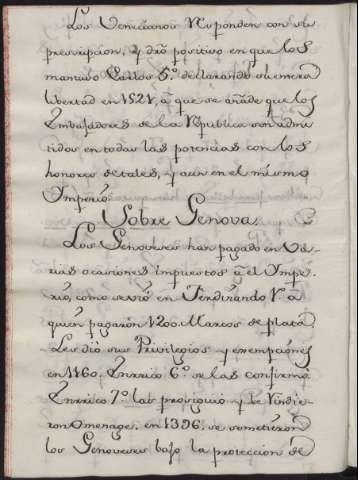 Los Venecianos Responden con su
prescripcion, y dro positivo en que los
mantuvo Carlos 5.º declarando su entera
libertad en 1521, à que se añade que los
Embajadores de la Republica son admi
tidos en todas las potencias con los
honores de tales, y aun en el mismo
Imperio.
Sobre Genova
Los Genoveses han pagado en Va-
rias ocasiones impuestos à el Impe-
rio, como se vió en Ferdinando 1.º a
quien pagaron 1200 Marcos de plata
Les dio sus Privilegios y exempciones
en 1160. Enrrico 6.º se las confirmó
Enrrico 7.º las prosiguio y le Rindie-
ron Omenage. en 1396. se sometieron
los Genoveses bajo la proteccion de